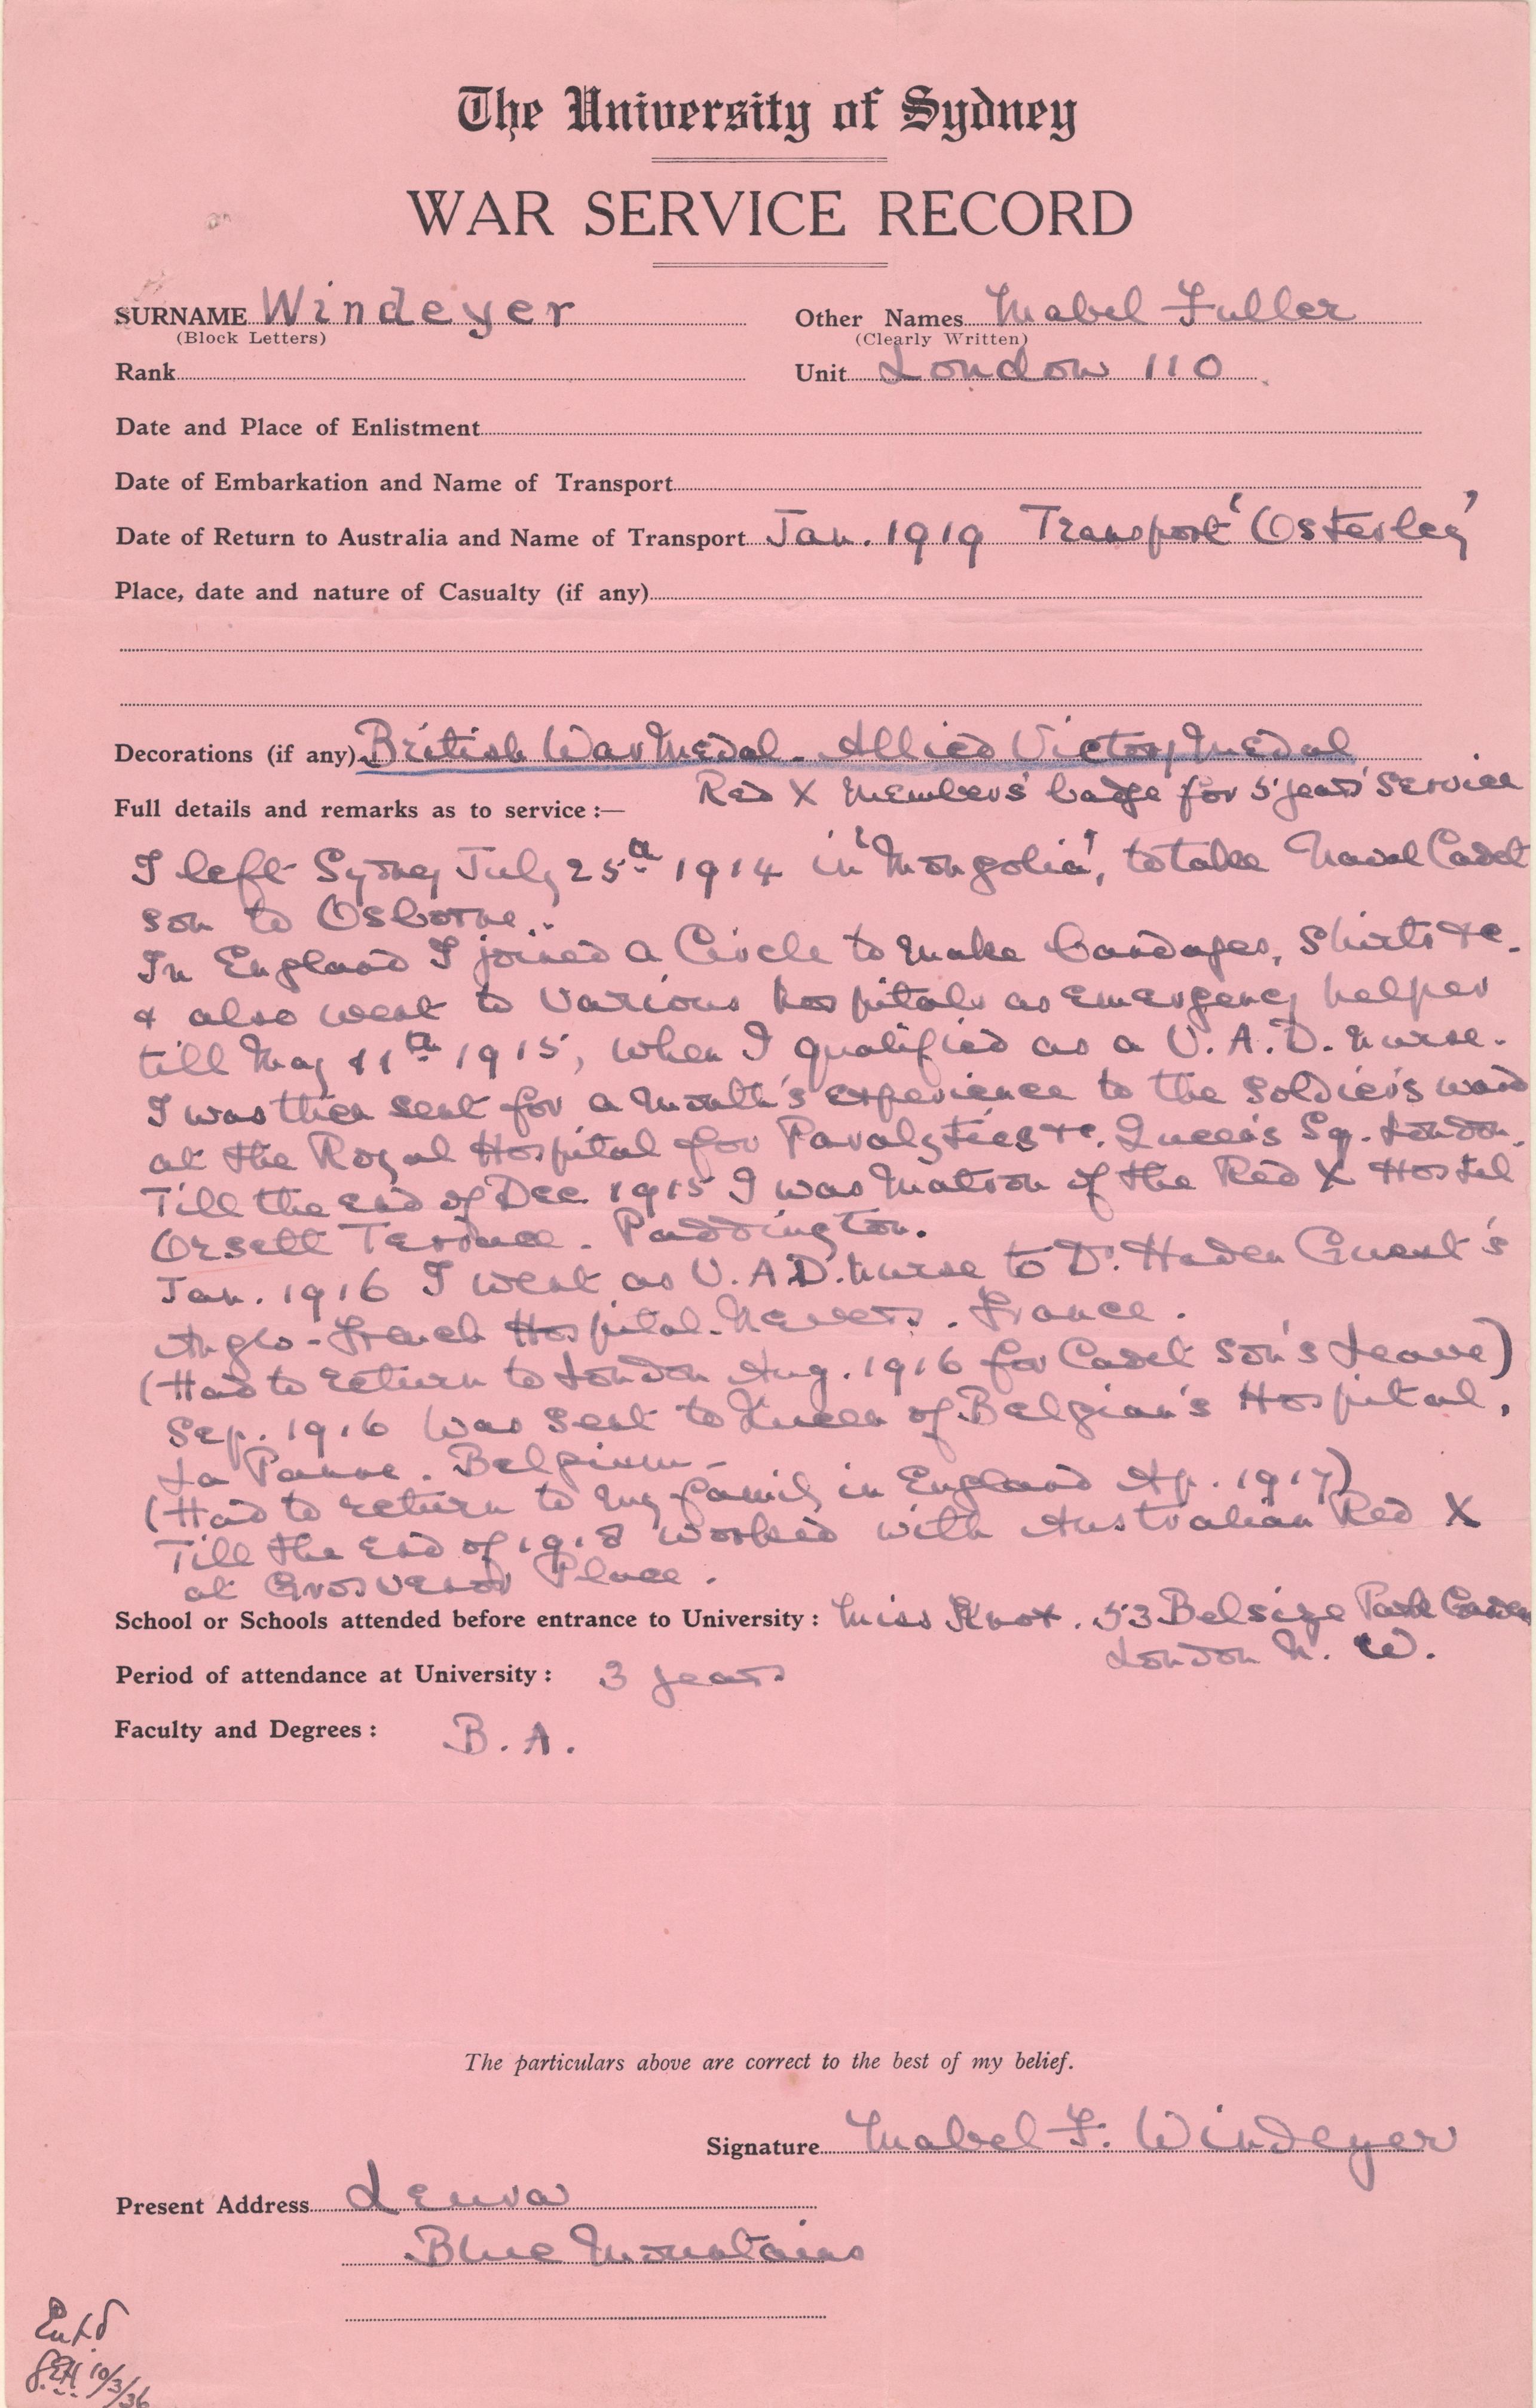 The University of Sydney
WAR SERVICE RECORD
SURNAME Windeyer Other Names Mabel Fuller
(Block Letters) (Clearly Written)
Rank Unit London 110
Date and Place of Enlistment
Date of Embarkation and Name of Transport
Date of Return to Australia and Name of Transport Jan. 1919 Transport 'Osterley'
Place, date and nature of Casualty (if any)
Decorations (if any) British War Medal - Allied Victory Medal
Red X Members' badge for 5 years' service
Full details and remarks as to service :—
I left Sydney July 25th 1914 in 'Mongolia', to take Naval Cadet
son to Osborne.
In England I joined a Circle to make bandages, shirts &c.
& also went to various hospitals as emergency helper
till May 11th 1915, when I qualified as a V.A.D. nurse.
I was then sent for a month's experience to the soldiers ward
at the Royal Hospital for Paralytics &c. Queen's Sq. London.
Till the end of Dec 1915 I was Matron of the Red X Hostel
Orsett Terrace. Paddington.
Jan. 1916 I went as V.A.D. nurse to Dr. Haden Guest's
Anglo-French Hospital. Nevers. France.
(Had to return to London Aug. 1916 for Cadet son's leave)
Sep. 1916 was sent to Queen of Belgian's Hospital,
La Panne. Belgium -
(Had to return to my family in England Ap. 1917)
Till the end of 1918 worked with Australian Red X
at Grosvenor Place.
School or Schools attended before entrance to University : Miss Knox. 53 Belsize Park Gardens
London N. W.
Period of attendance at University : 3 years
Faculty and Degrees : B. A.
The particulars above are correct to the best of my belief.
Signature Mabel F. Windeyer
Present Address Leura
Blue Mountains
Ent'd
10/3/36